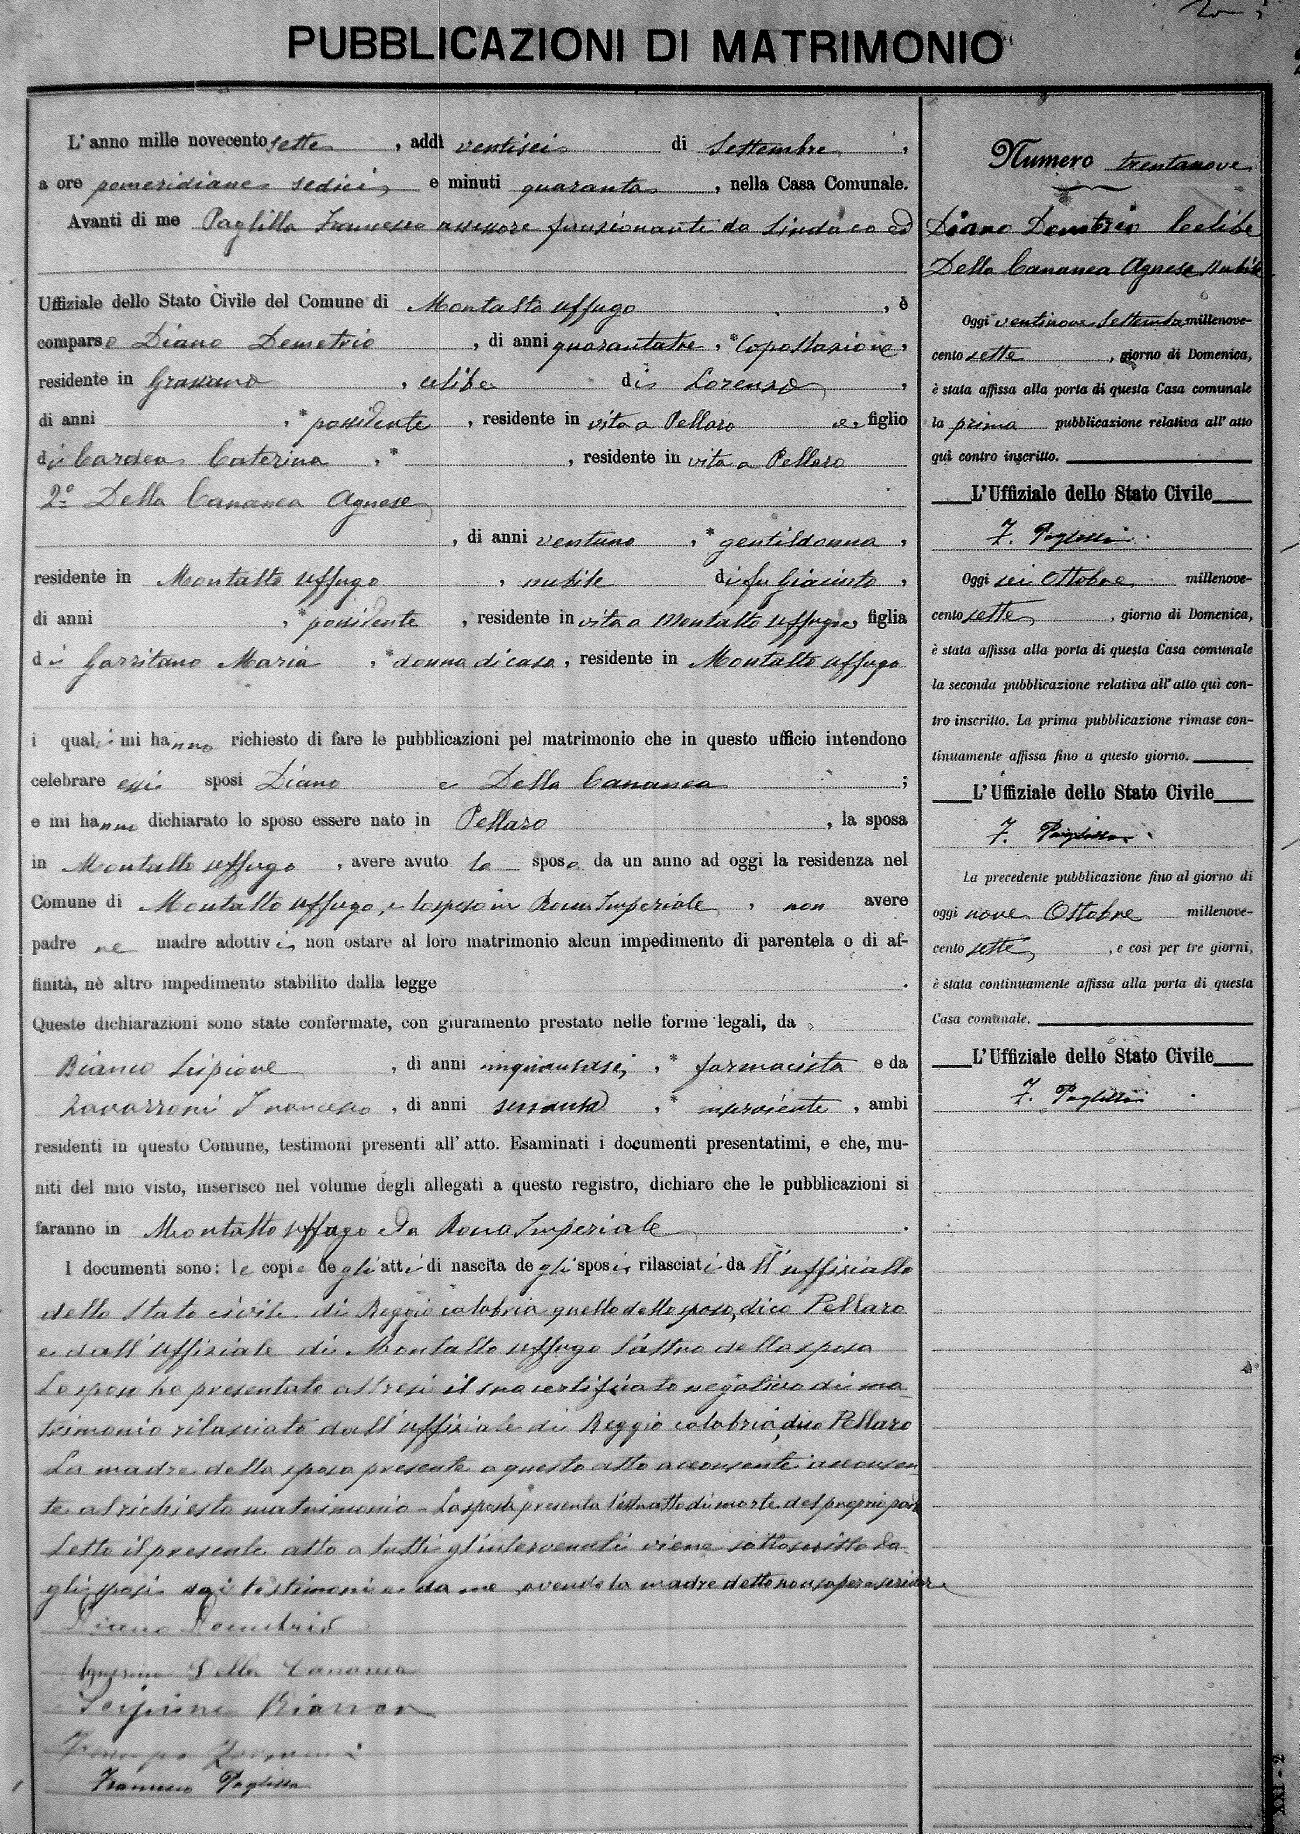 PUBBLICAZIONI DI MATRIMONIO
L'anno mille novecento sette, addì ventisei di Settembre,
a ore pomeridiane sedici e minuti quaranta, nella Casa Comunale.
Avanti di me Paglilla Francesco assessore funzionante da Sindaco ed
Uffiziale dello Stato Civile del Comune di Montalto Uffugo, è
comparso Diano Demetrio, di anni quarantatre, * Capostazione,
residente in Grassano, celibe di Lorenzo,
di anni , * possidente, residente in vita a Pellaro e, figlio
di Cardea Caterina, * , residente in vita a Pellaro
2º Della Cananea Agnese
, di anni ventuno, * gentildonna,
residente in Montalto Uffugo, nubile di fu Giacinto,
di anni , * possidente, residente in vita a Montalto Uffugo e, figlia
di Garritano Maria, * donna di casa, residente in Montalto Uffugo
i quali mi hanno richiesto di fare le pubblicazioni pel matrimonio che in questo ufficio intendono
celebrare essi sposi Diano e Della Cananea ;
e mi hanno dichiarato lo sposo essere nato in Pellaro, la sposa
in Montalto Uffugo, avere avuto la sposa da un anno ad oggi la residenza nel
Comune di Montalto Uffugo, e lo sposo in Rocca Imperiale, non avere
padre ne madre adottivi, non ostare al loro matrimonio alcun impedimento di parentela o di af-
finità, nè altro impedimento stabilito dalla legge .
Queste dichiarazioni sono state confermate, con giuramento prestato nelle forme legali, da
Bianco Scipione, di anni cinquantasei, * farmacista e da
Zavarroni Francesco, di anni sessanta, * inserviente, ambi
residenti in questo Comune, testimoni presenti all'atto. Esaminati i documenti presentatimi, e che, mu-
niti del mio visto, inserisco nel volume degli allegati a questo registro, dichiaro che le pubblicazioni si
faranno in Montalto Uffugo ed a Rocca Imperiale .
I documenti sono: le copie degli atti di nascita degli sposi, rilasciati da ll'uffiziale
dello Stato civile di Reggio calabria quello dello sposo, dico Pellaro
e dall'uffiziale di Montalto Uffugo l'altro della sposa
Lo sposo ha presentato altresi il suo certificato negativo di ma-
trimonio rilasciato dall'uffiziale di Reggio calabria, dico Pellaro
La madre della sposa presente a questo atto acconsente acconsen
te al richiesto matrimonio - La sposa presenta l'estratto di morte del proprio padre
Letto il presente atto a tutti gl'intervenuti viene sottoscritto da-
gli sposi dai testimoni e da me, avendo la madre detto non sapere scrivere
Diano Demetrio
Agnesina Della Cananea
Scipione Bianco
Francesco Zavarroni
Francesco Paglilla
Numero trentanove
Diano Demetrio Celibe
Della Cananea Agnese Nubile
Oggi ventinove Settembre millenove-
cento sette, giorno di Domenica,
è stata affissa alla porta di questa Casa comunale
la prima pubblicazione relativa all'atto
quì contro inscritto.
L'Uffiziale dello Stato Civile
F. Paglilla
Oggi sei Ottobre millenove-
cento sette, giorno di Domenica,
è stata affissa alla porta di questa Casa comunale
la seconda pubblicazione relativa all'atto quì con-
tro inscritto. La prima pubblicazione rimase con-
tinuamente affissa fino a questo giorno.
L'Uffiziale dello Stato Civile
F. Paglilla
La precedente pubblicazione fino al giorno di
oggi nove Ottobre millenove-
cento sette, e così per tre giorni,
è stata continuamente affissa alla porta di questa
Casa comunale.
L'Uffiziale dello Stato Civile
F. Paglilla
XXI - 2